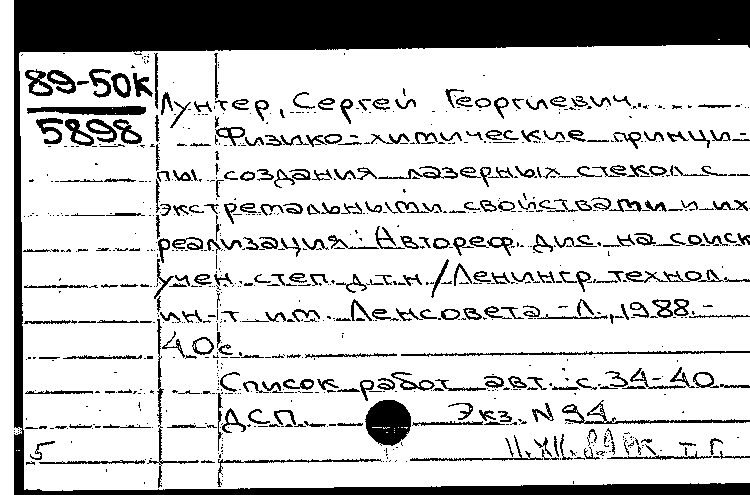 89-50к
5898
Лунтер, Сергей Георгиевич.
Физико-химические принци-
пы создания лазерных стекол с
экстремальными свойствами и их
реализация: Автореф. дис. на соиск
учен. степ. д.т.н/Ленингр. технол.
ин-т им. Ленсовета.-Л., 1988.-
40с.
Список работ авт.: с. 34-40
ДСП. Экз. N 94.
5 11.XII.89 РК т.г.